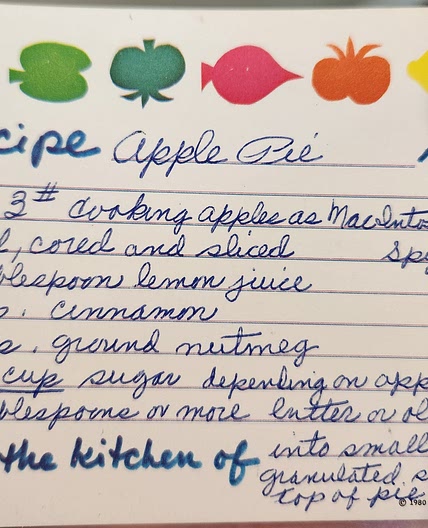 cipe Apple Pie
3# Cooking apples as MacInto
l, cored and sliced Spy
blespoon lemon juice
p. cinnamon
p. ground nutmeg
cup sugar depending on app
blespoons or more butter or ol
the kitchen of into small
granulated s
top of pie
© 1980